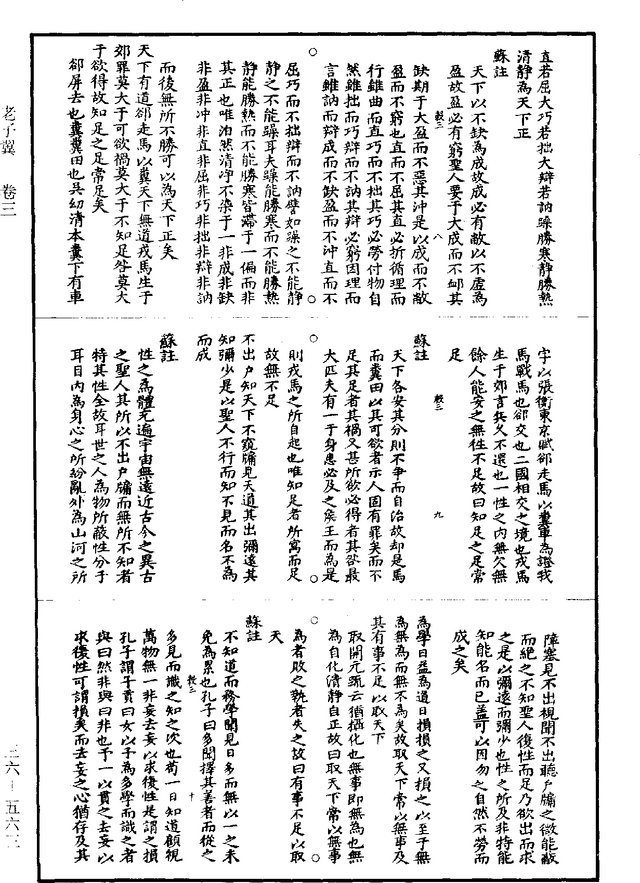 直若屈大巧若拙大辯若訥躁勝寒靜勝熱
清靜為天下正
蘇註
天下以不缺為成故成必有敝以不虛為
盈故盈必有窮聖人要于大成而不卹其
缺期于大盈而不惡其沖是以成而不敝
盈而不窮也直而不屈其直必折循理而
行雖曲而直巧而不拙其巧必勞付物自
然雖拙而巧辯而不訥其辯必窮因理而
言雖訥而辯成而不缺盈而不沖直而不
屈巧而不拙辯而不訥譬如躁之不能靜
靜之不能躁耳夫躁能勝寒而不能勝熱
靜能勝熱而不能勝寒皆滯于一偏而非
其正也唯泊然清淨不染于一非成非缺
非盈非沖非直非屈非巧非拙非辯非訥
而後無所不勝可以為天下正矣
天下有道卻走馬以糞天下無道戎馬生于
郊罪莫大于可欲禍莫大于不知足咎莫大
于欲得故知足之足常足矣
卻屏去也糞糞田也吳幼清本糞下有車
字以張衡東京賦卻走馬以糞車為證我
馬戰馬也卻交也二國相交之境也戎馬
生于郊言兵久不還也一性之內無欠無
餘人能安之無往不足故曰知足之足常
足
蘇註
天下各安其分則不爭而自治故却是馬
而糞田以其可欲者示人固有罪矣而不
足其足者其禍又甚所欲必得者其咎最
大匹夫有一于身患必及之侯王而為是
則戎馬之所自起也唯知足者所寓而足
故無不足
不出戶知天下不窺牖見天道其出彌遠其
知彌少是以聖人不行而知不見而名不為
而成
蘇註
性之為體充遍宇宙無遠近古今之異古
之聖人其所以不出戶牖而無所不知者
特其性全故耳世之人為物所蔽性分于
耳目內為身心之所紛亂外為山河之所
障塞見不出視聞不出聽戶牖之微能蔽
而絕之不知聖人復性而足乃欲出而求
之是以彌遠而彌少也性之所及非特能
知能名而已蓋可以因物之自然不勞而
成之矣
為學日益為道日損損之又損之以至于無
為無為而無不為矣故取天下常以無事及
其有事不足以取天下
取開元疏云猶攝化也無事即無為也無
為自化清靜自正故曰取天下常以無事
為者敗之執者失之故曰有事不足以取
天
蘇註
不知道而務學聞見日多而無以一之未
免為累也孔子曰多聞擇其善者而從之
多見而識之知之次也苟一日知道顧視
萬物無一非妄去妄以求復性是謂之損
孔子謂子貢曰女以予為多學而識之者
與曰然非與曰非也予一以貫之去妄以
求復性可謂損矣而去妄之心猶存及其
老子翼 卷三
三六－五六三